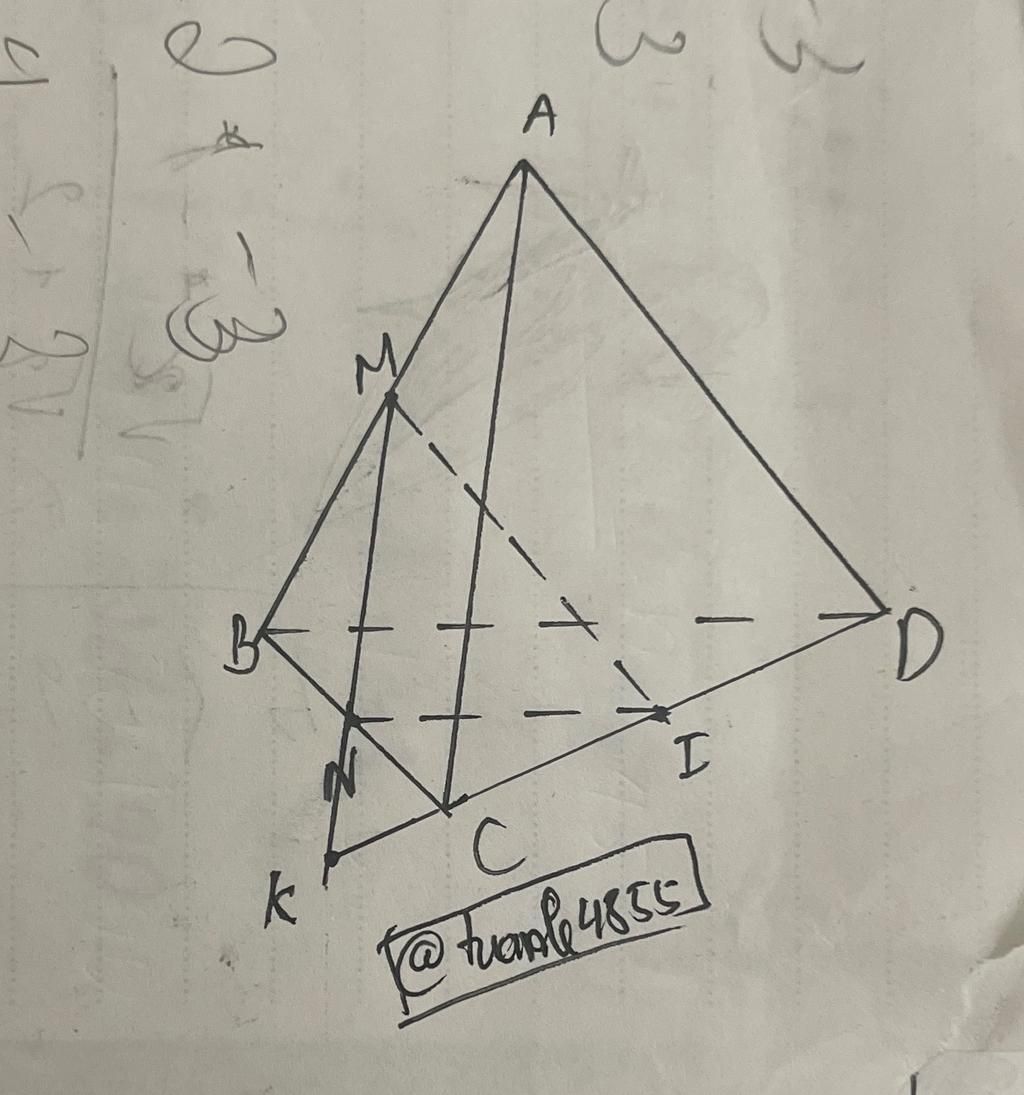 A
M
B
D
N
I
C
K
@tuanle4855